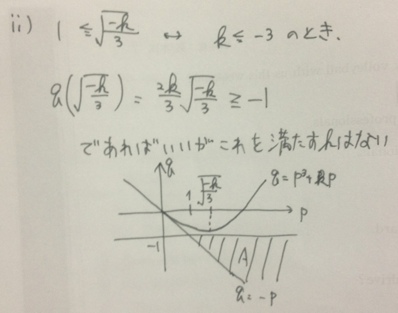 ii) 1 ≦ √(-k/3) ↔ k ≦ -3 のとき.
q(√(-k/3)) = 2k/3 √(-k/3) ≧ -1
であればいいがこれを満たすkはない
q
√(-k/3)
q = p³+kp
1
p
-1
A
q = -p